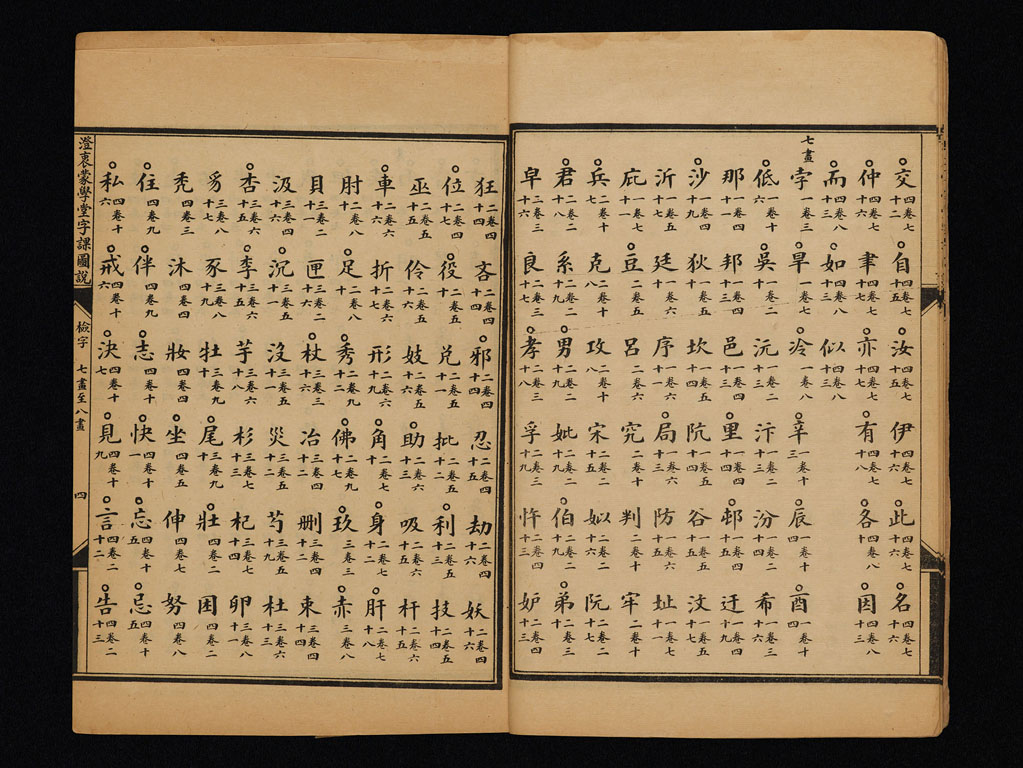 交 四卷七十二 自 四卷七十五 汝 四卷七十五 伊 四卷七十六 此 四卷七十六 名 四卷七十六
仲 四卷七十六 聿 四卷七十七 亦 四卷七十七 有 四卷七十八 各 四卷八十 因 四卷八
而 四卷八十六 如 四卷八十三 似 四卷八十三
七畫
孛 一卷三 旱 一卷七 冷 一卷三 辛 一卷十三 辰 一卷十四 酉 一卷十四
低 一卷十六 吳 一卷二十 沅 一卷二十三 汴 一卷二十三 汾 一卷二十四 希 一卷三十六
那 一卷四十一 邦 一卷四十三 邑 一卷四十三 里 一卷四十四 邨 一卷四十四 迂 一卷四十九
沙 一卷五十九 狄 一卷五十 坎 一卷五十四 阬 一卷五十四 谷 一卷五十五 汶 一卷五十七
沂 一卷五十七 廷 一卷六十七 序 一卷六十一 局 一卷六十三 防 一卷六十五 址 一卷七十一
庇 一卷七十一 豆 二卷五 呂 二卷六 究 二卷十 判 二卷十 牢 二卷十
兵 克 攻 宋 姒 阮
君 系 男 妣 伯 弟
皁 良 孝 孚 忤 妒
狂 二卷四十四 吝 二卷四 邪 二卷四十四 忍 二卷四十五 劫 二卷四十六 妖 二卷四十六
位 二卷四十七 役 二卷五十 兌 二卷五十一 批 二卷五十二 利 二卷五十三 技 二卷五十四
巫 二卷五十五 伶 二卷五 妓 二卷五十六 助 二卷六十二 吸 二卷六十五 杆 二卷六十五
車 二卷六十六 折 二卷六十七 形 二卷六十九 角 二卷七十 身 二卷七十二 肝 二卷七十八
肘 二卷八十一 足 二卷十 秀 二卷九十二 佛 二卷九十七 玖 三卷三 赤 三卷八
貝 三卷二十八 匣 三卷二十六 杖 三卷三十六 冶 三卷四十二 刪 三卷四十二 束 三卷四
汲 三卷四十六 沉 三卷五十一 沒 三卷五十一 災 三卷五十二 芍 三卷五十九 杜 三卷六十三
杏 三卷六十五 李 三卷六十五 芋 三卷六十八 杉 三卷七十三 杞 三卷七十四 卵 三卷八十一
豸 三卷八十七 豕 三卷八十九 牡 三卷九十 尾 三卷九 壯 四卷二 困 四卷二
禿 四卷三 沐 四卷 妝 四卷四 坐 四卷五 伸 四卷七 努 四卷八
住 四卷九 伴 四卷九 志 四卷十 快 四卷十一 忘 四卷十五 忌 四卷十五
私 四卷十六 戒 四卷十六 決 四卷十七 見 四卷十九 言 四卷二十二 告 四卷二十三
澄衷蒙學堂字課圖說
檢字 七畫至八畫
四